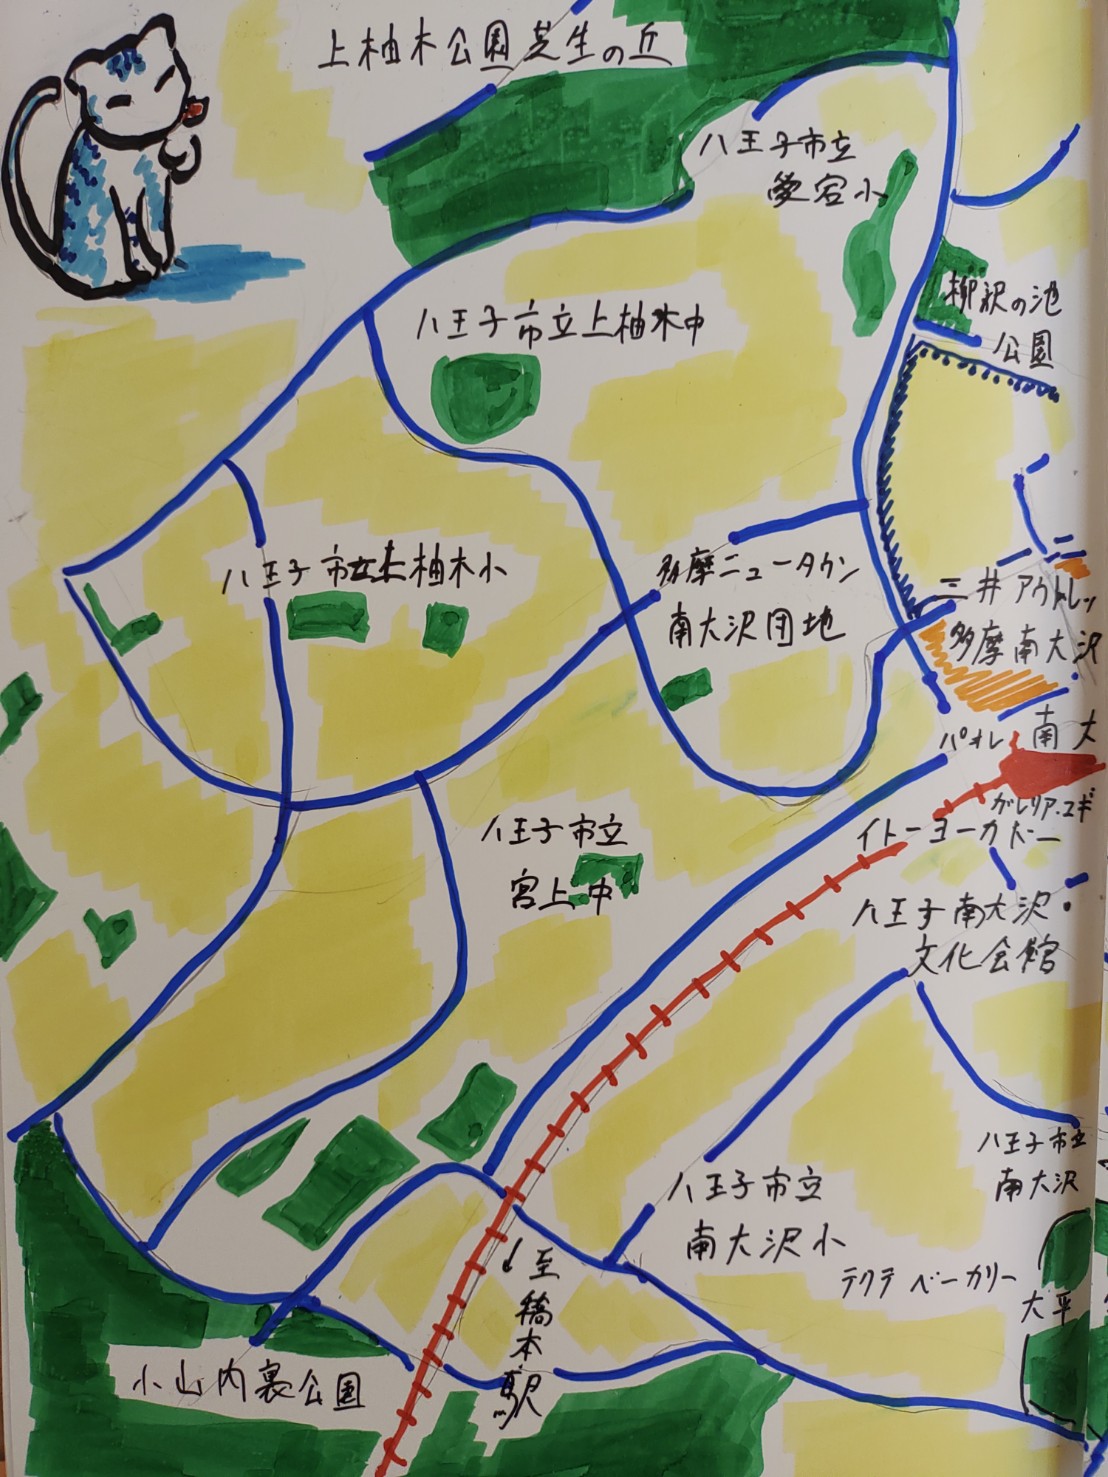 上柚木公園芝生の丘
八王子市立
愛宕小
柳沢の池
公園
八王子市立上柚木中
八王子市立上柚木小
多摩ニュータウン
南大沢団地
三井アウトレッ
多摩南大沢
パオレ
南大
ガレリア・ユギ
イトーヨーカドー
八王子市立
宮上中
八王子南大沢
文化会館
八王子市立
南大沢
八王子市立
南大沢小
テクテベーカリー
大平
↓至橋本駅
小山内裏公園